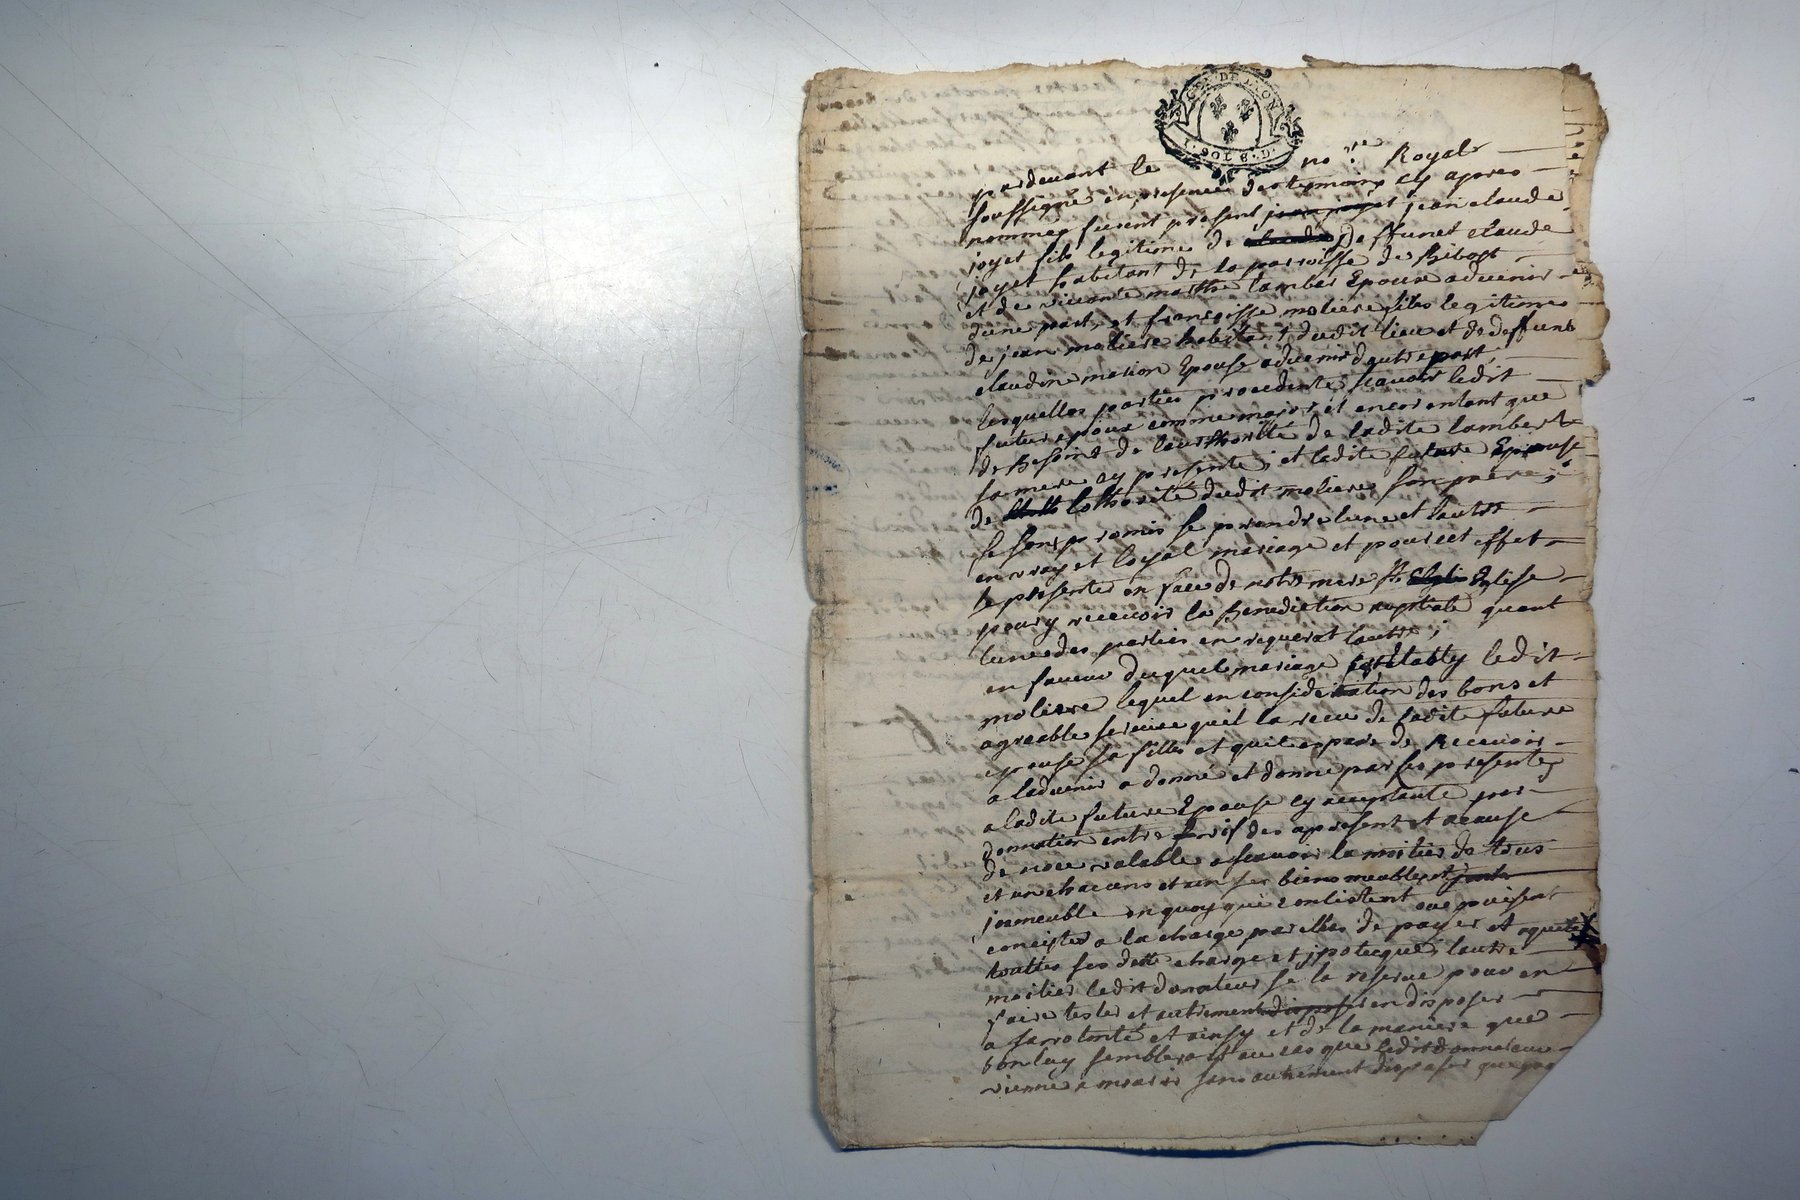 GEN · DE LION
1 · SOL 8 · D ·
pardevant le no.re Royal
soussigné en presence des temoins cy apres
nommes furent present jean joyet jean claude
joyet fils legitime de claude deffunct claude
joyet habitant de la paroisse de Bibost
et de vivante marthe lambert Epoux advenir
dune part, et francoisse moliere filles legitimes
de jean moliere habitant dudit lieu et de deffunte
claudine Epouse advenir dautre part,
lesquelles parties procedente scavoir ledit
futur epoux comme major et encor entant que
de Besoint de lauthorité de ladite lambert
sa mere cy presente, et ladite future Epouse
de lothorité dudit moliere son paire ;
se sont promis se prendre lune et lautre
en vray et loyal mariage et pour cet effet
se presenter en face de notre mere ste Eglise
pour y recevoir la Benediction nuptiale quant
lune des parties en requerat lautre ;
en faveur duquel mariage set etably ledit
moliere lequel en consideration des bons et
agreable service quil la recu de ladite future
epouse sa filles et quil espere de Recevoir
a ladvenir a donné et donne par ses presentes
a ladite future Epouse cy acceptante par
donnation entre vrif des apresent et acause
de noce valable ascavoir la moitier de tous
et un chacuns et un ses biens meubles et
jmmeuble en quoy qui consistent ou puisent
concister a la charge par elles de payer et aquiter
touttes ses dette charge et jpoteque, lautre
moitier ledit donateur se la reserve pour en
faire tester et autrement disposer en disposer
a sa volonté et ainsy et de la maniere que
bon luy semblera et au cas que ledit donnateur
vienne a mourir sans autrement disposer que